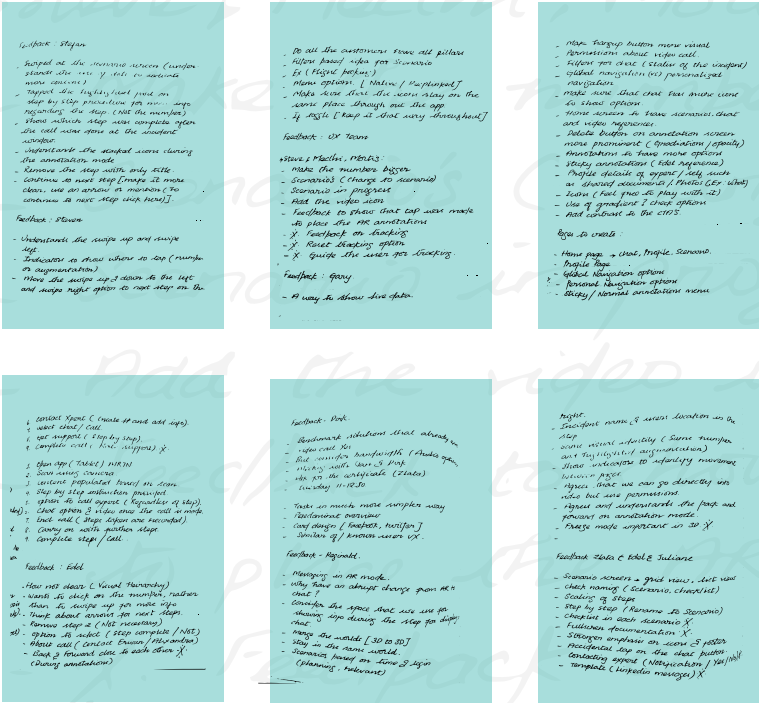 Feedback : Stefan
- Swiped at the scenario screen (under
stands the use of dots to indicate
more options)
- Tapped the highlighted part on
step by step procedure for more info
regarding the step. (Not the number)
- Show which step was complete after
the call was done at the incident
window.
- Understands the stacked icons during
the annotation mode
- Remove the step with only title.
- Continue to next step [make it more
clear, use an arrow or mention (To
continue to next step click here)].
Feedback : Steven
- Understands the swipe up and swipe
left.
- Indicator to show where to tap (number
or augmentation)
- Move the swipe up & down to the left
and swipe right option to next step on the
- Do all the customers have all pillars
- Filters based idea for Scenario
- Ex (Flight booking)
- Menu options. [Native /
- Make sure that the icons stay on the
same place through out the app
- If toggle [Keep it that way throughout]
Feedback : UX Team
Steve, Madhri,
- Make the number bigger
- Scenarios (Change to scenario)
- Scenario in progress
- Add the video icon
- Feedback to show that tap was made
to place the AR annotations
- X. Feedback on tracking
- X. Reset tracking option
- X. Guide the user for tracking.
Feedback : Gary
- A way to show live data.
- Make Hangup button more visual
- Permissions about video call.
- Filters for chat (status of the incident)
- Global navigation (vs) personalized
navigation
- Make sure that chat has make call
to show options
- Home screen to have scenarios, chat
and video references.
- Delete button on annotation screen
more prominent (Gradiation / opacity)
- Annotations to have more options
- Sticky annotations (Edol reference)
- Profile details of expert / self such
as shared documents / Photos (Ex:
- Icon (Feel free to play with it)
- Use of gradient ? check options
- Add contrast to the CTA'S.
Pages to create :
- Home page → chat, Profile, Scenario.
- Profile Page
- Global Navigation options
- Personal Navigation options
- Sticky / Normal annotations menu
6. Contact Xpert (Create # and add info).
7. Select chat / Call.
8. Get support (Step by step).
9. Complete call (
1. Open app (Tablet /
2. Scan using camera
3. Incident populated based on scan.
4. Step by step instruction provided
5. Option to call expert (Regardless of step).
6. Chat option & video once the call is made.
7. End call (Steps taken are recorded).
8. Carry on with further steps.
9. Complete steps / call.
Feedback : Edol
- How not clear (Visual Hierarchy)
- Wants to click on the number, rather
than to swipe up for more info
- Think about arrows for next steps.
- Remove step 2 (Not necessary)
- Option to select (Step complete / Not)
- About call (Contact Erwan / Alexandra)
- Back & forward close to each other X.
(During annotations)
Feedback - Dirk
- Benchmark solutions that already
video call
- But consider bandwidth (
- Meeting with Dan & Dirk
- Ask for the certificate (Zlata)
- Tuesday 11-12:30
- Tasks in much more simpler way
- Predominant overview
- Card design (Facebook, twitter]
- Similar of / known user UX.
Feedback - Reginald.
- Messaging in AR mode.
- Why have an abrupt change from AR to
chat ?
- Consider the space that we use for
showing info during the step for display
chat.
- Merge the worlds [3D to 2D]
- Stay in the same world.
- Scenarios based on time & login
(planning, relevant)
Right.
- Incident name & users location in the
step
- Same visual identity (Same number
and highlighted augmentation)
- Show indicators to identify movement
between pages
- Agrees that we can go directly into
video but use permissions.
- Agreed and understands the back and
forward on annotation mode.
- Freeze mode important in 3D X
Feedback Zlata & Edol & Juliane
- Scenario screen → grid view, list view
- Check naming (Scenario, checklist)
- Scaling of steps
- Step by step (Rename to Scenario)
- Checklist in each scenario X.
- Fullscreen documentation X.
- Stronger emphasis on icons & footer
- Accidental tap on the chat button.
- Contacting expert (Notification / Yes/No)X
- Template (Linkedin messages) X